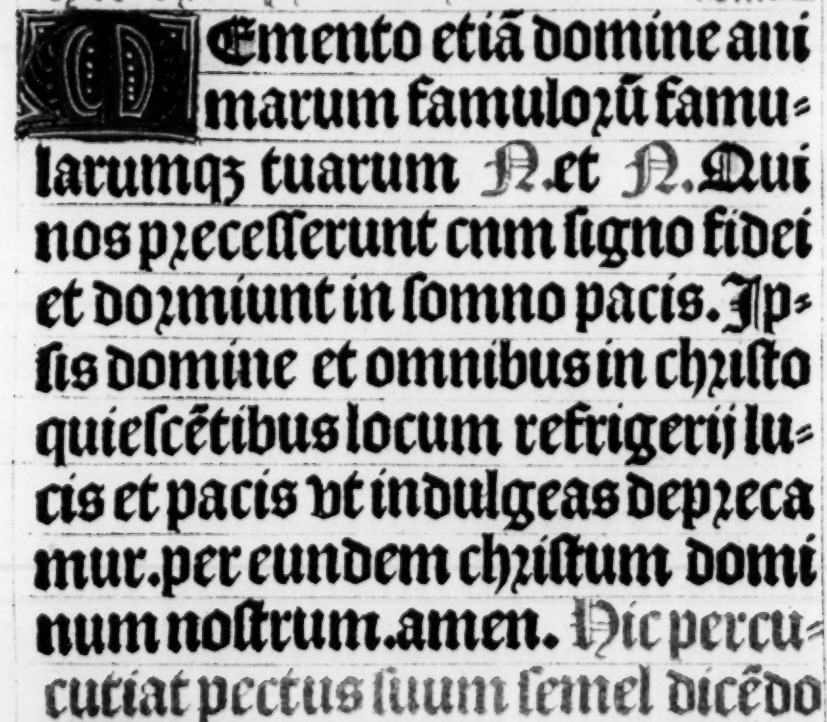 MEmento etiā domine ani
marum famuloꝛū famu⸗
larumqꝫ tuarum N.et N.Qui
nos pꝛeceſſerunt cnm ſigno fidei
et doꝛmiunt in ſomno pacis.Ip⸗
ſis domine et omnibus in chꝛiſto
quieſcētibus locum refrigerij lu⸗
cis et pacis vt indulgeas depꝛeca
mur.per eundem chꝛiſtum domi
num noſtrum.amen. Hic percu⸗
cutiat pectus ſuum ſemel dicēdo